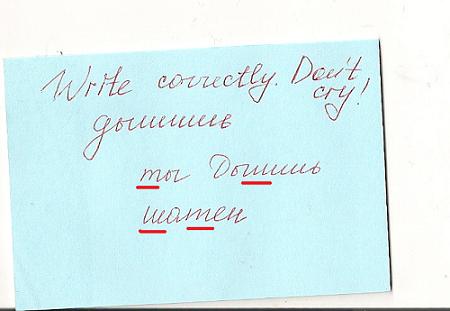 Write correctly. Don't
cry!
дышишь
ты Дышишь
шатен